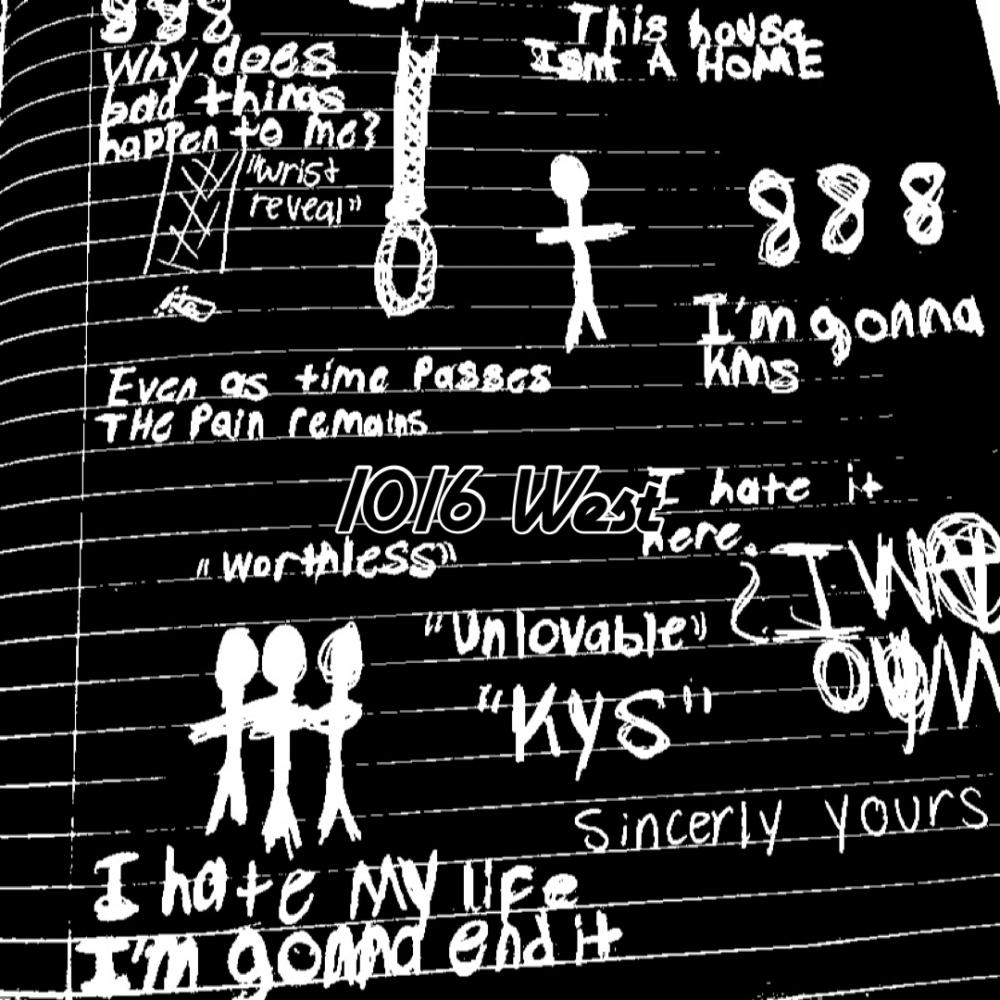 888
Why does
bad things
happen to me?
"wrist
reveal"
This house
Isnt A HOME
888
I'm gonna
kms
Even as time Passes
THE Pain remains
1016 West
I hate it
here.
"worthless"
"Unlovable"
"KYS"
Sincerly yours
I hate My life
I'm gonna end it